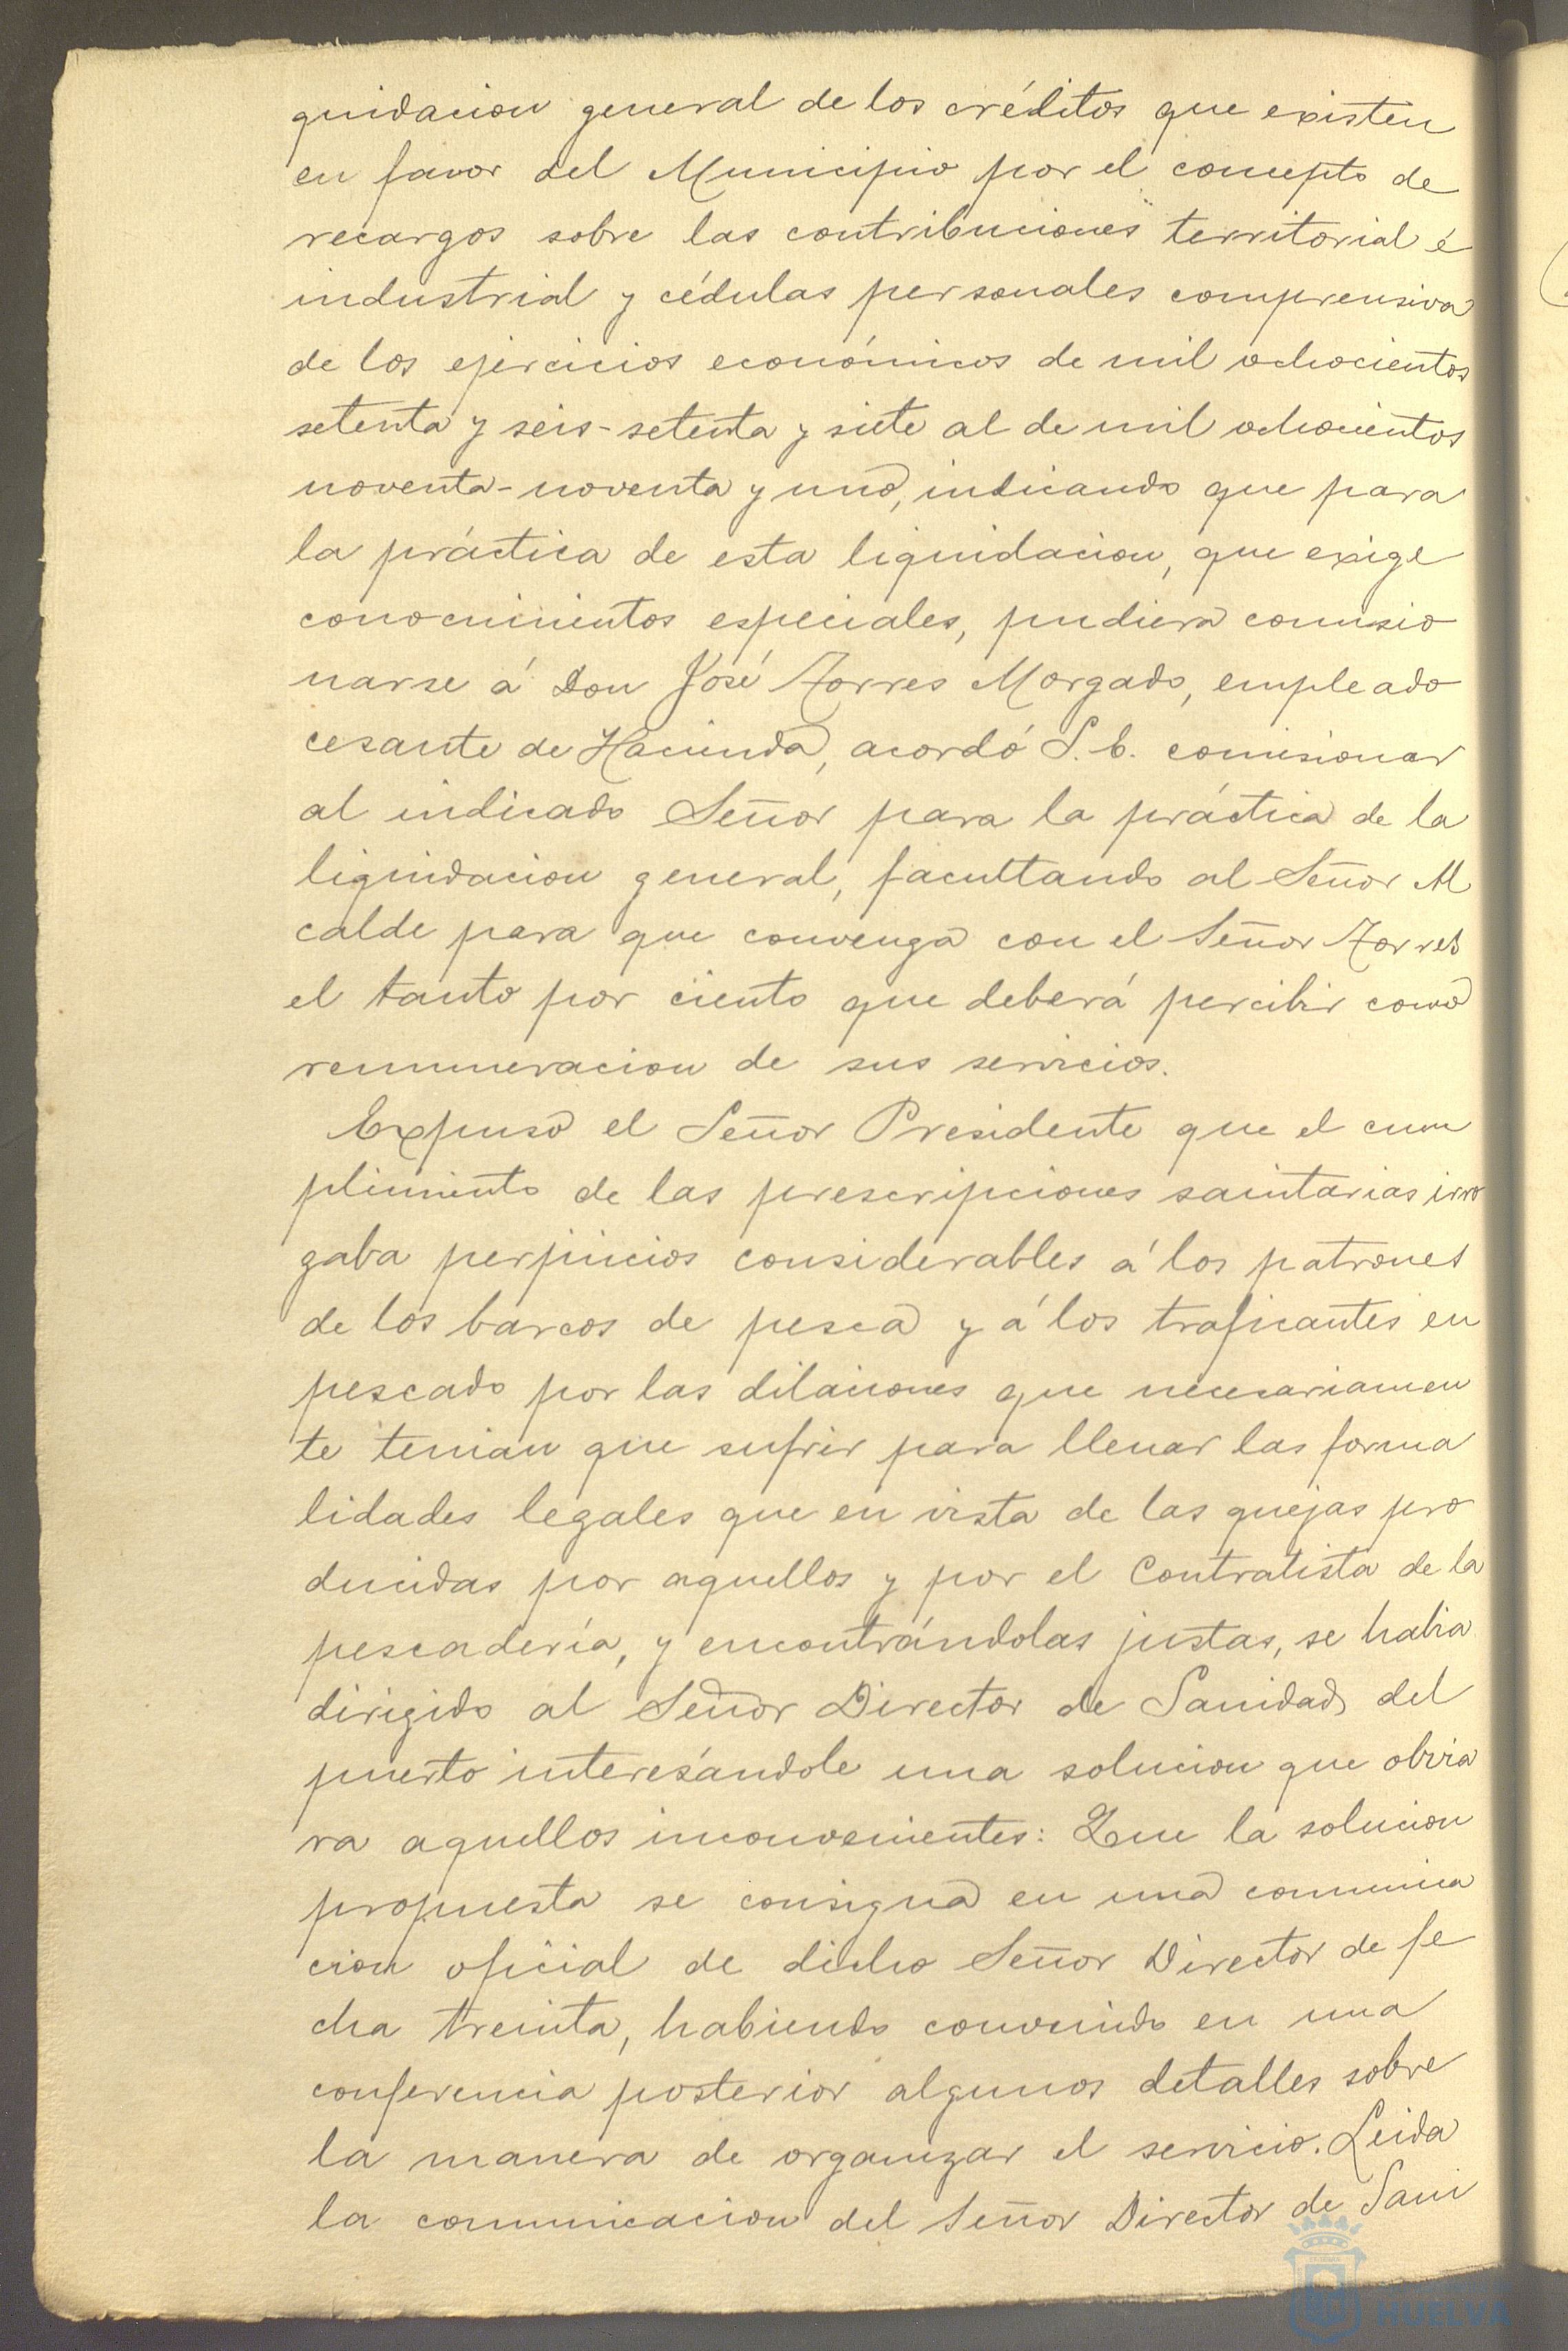 quidacion general de los créditos que existen
en favor del Municipio por el concepto de
recargos sobre las contribuciones territorial é
industrial y cédulas personales comprensiva
de los ejercicios económicos de mil ochocientos
setenta y seis-setenta y siete al de mil ochocientos
noventa-noventa y uno, indicando que para
la práctica de esta liquidacion, que exige
conocimientos especiales, pudiera comisio
narse á Don José Torres Morgado, empleado
cesante de Hacienda, acordó S.E. comisionar
al indicado Señor para la práctica de la
liquidacion general, facultando al Señor Al
calde para que convenga con el Señor Torres
el tanto por ciento que deberá percibir como
remuneracion de sus servicios.
Expuso el Señor Presidente que el cum
plimiento de las prescripciones sanitarias irro
gaba perjuicios considerables á los patrones
de los barcos de pesca y á los traficantes en
pescado por las dilaciones que necesariamen
te tenian que sufrir para llenar las forma
lidades legales que en vista de las quejas pro
ducidas por aquellos y por el Contratista de la
pescadería, y encontrándolas justas, se habia
dirigido al Señor Director de Sanidad del
puerto interesándole una solucion que obvia
ra aquellos inconvenientes: Que la solucion
propuesta se consigna en una comunica
cion oficial de dicho Señor Director de fe
cha treinta, habiendo convenido en una
conferencia posterior algunos detalles sobre
la manera de organizar el servicio. Leida
la comunicacion del Señor Director de Sani
HUELVA